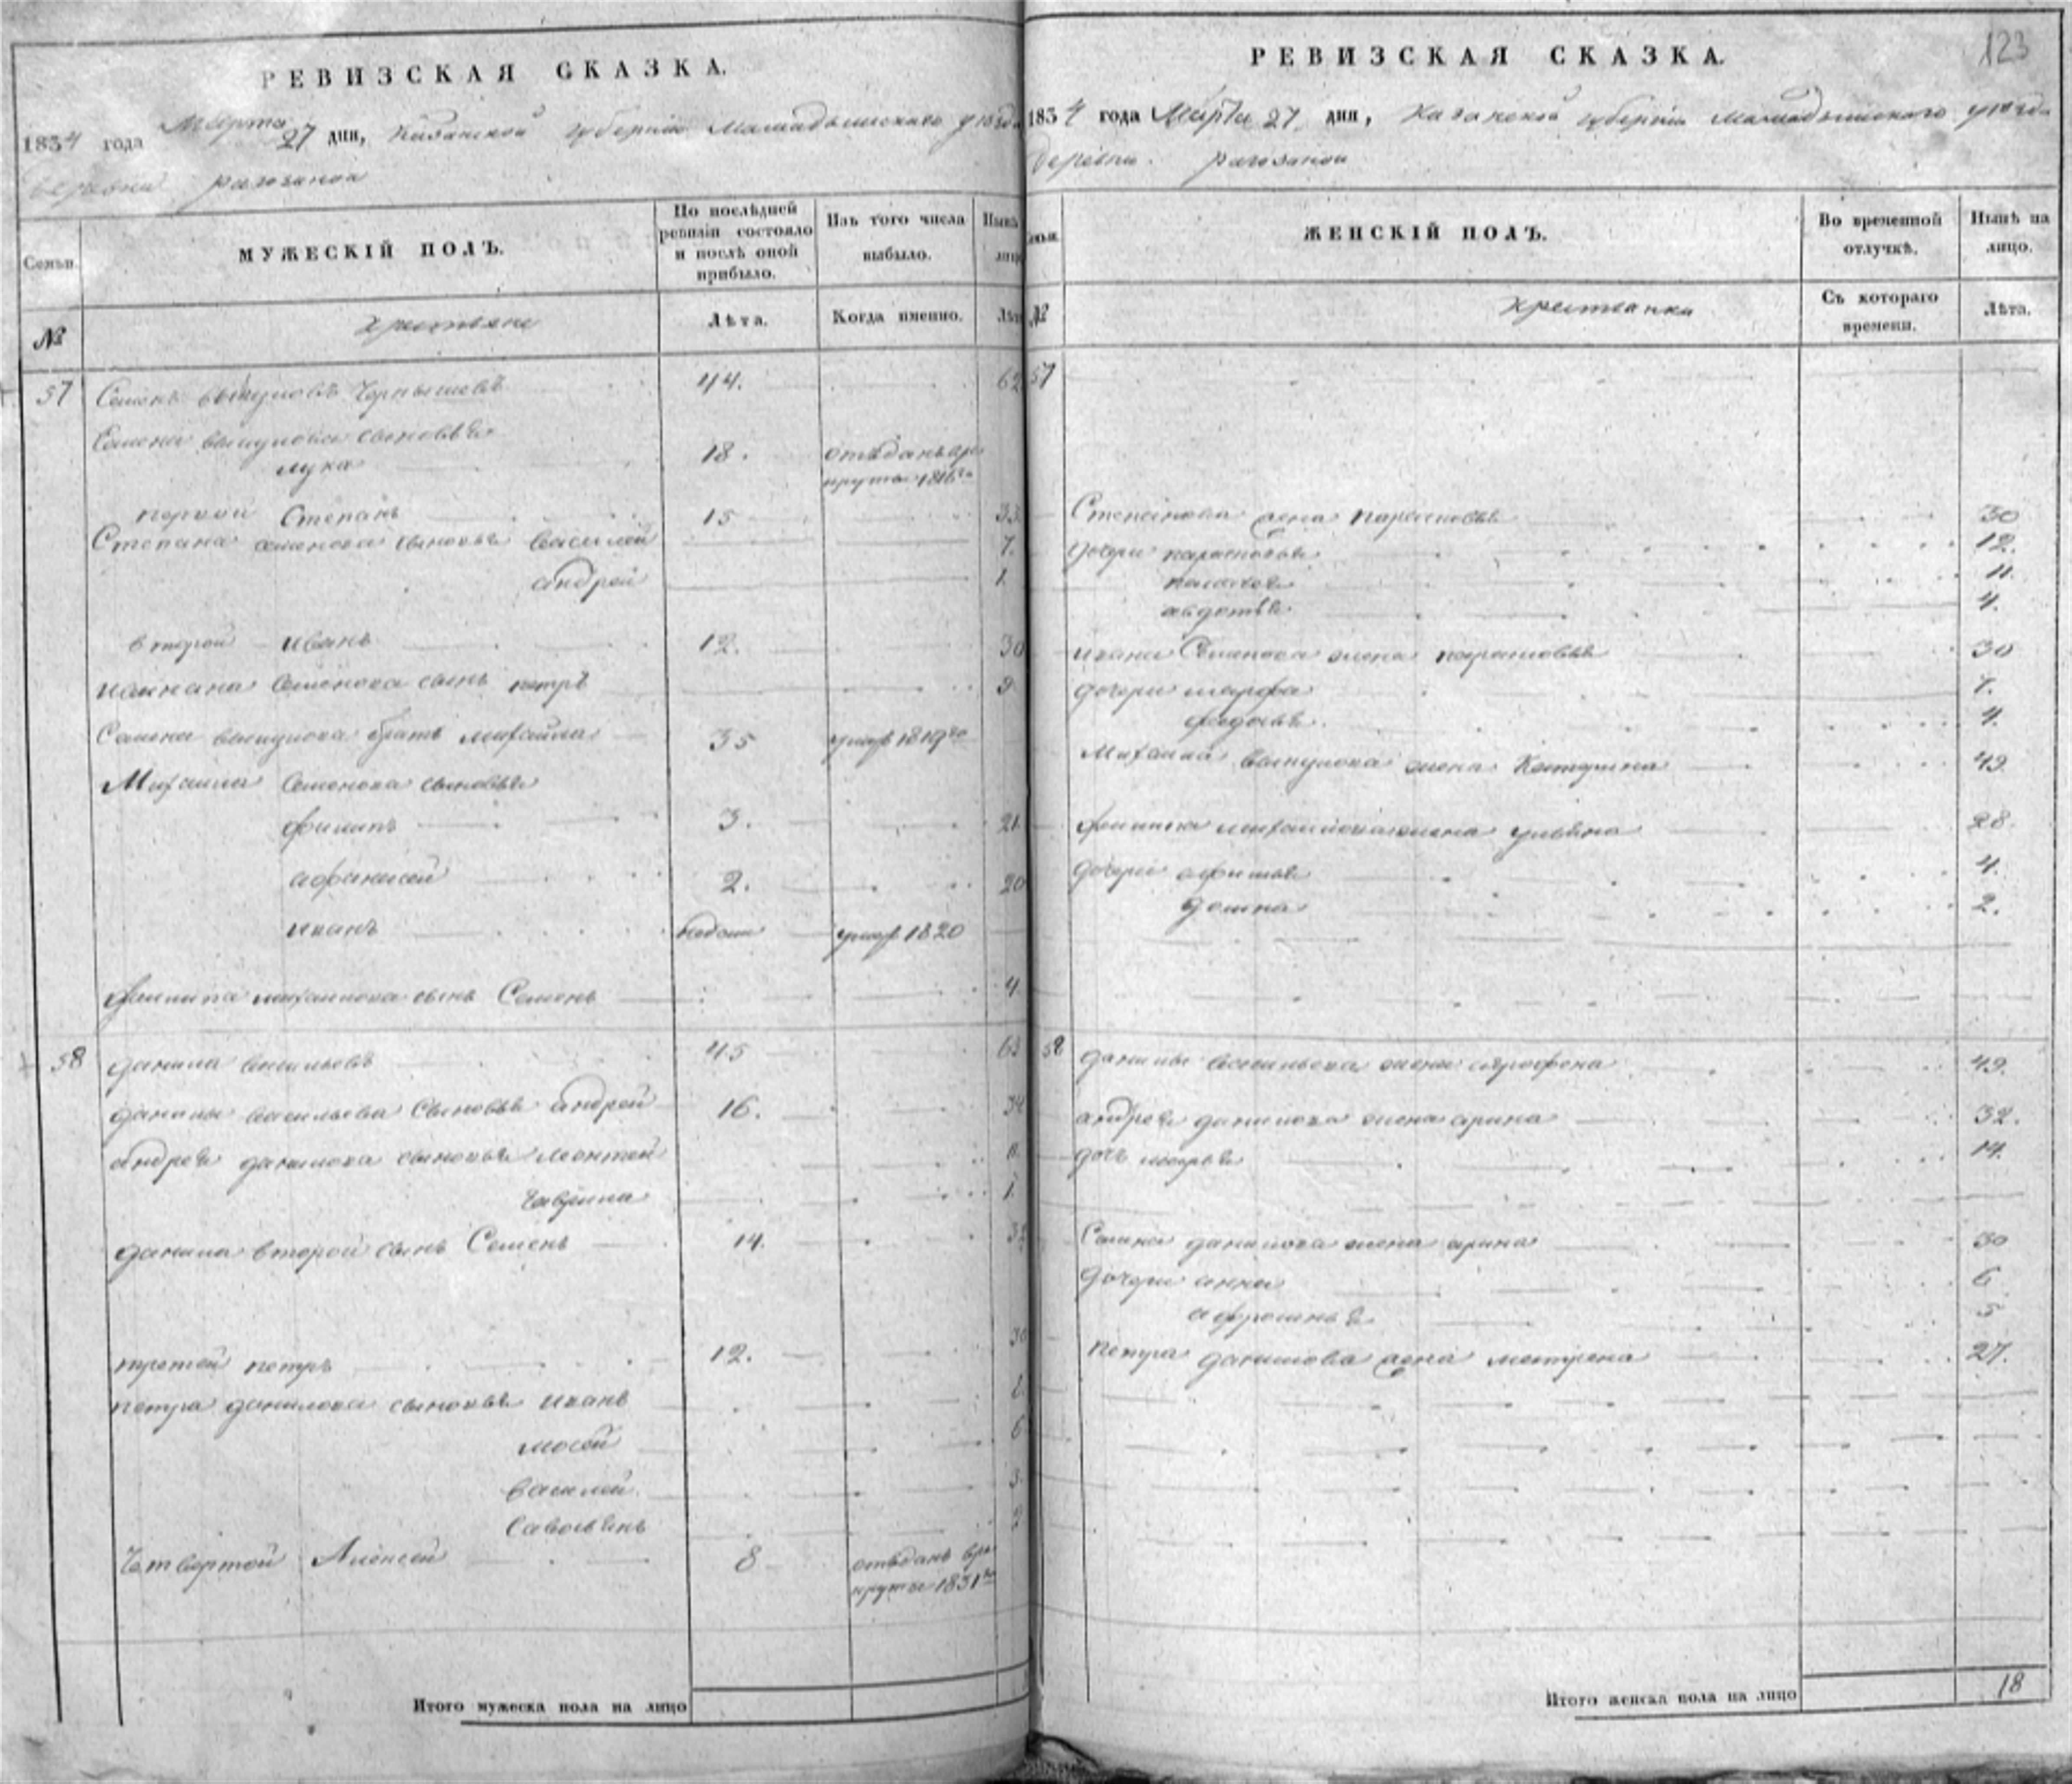 РЕВИЗСКАЯ СКАЗКА.
1834 года Марта 27 дня, Казанской губернии Мамадышскаго уезда
деревни
Семьи.
МУЖЕСКІЙ ПОЛЪ.
По послѣдней ревизіи состояло и послѣ оной прибыло.
Изъ того числа выбыло.
Нынѣ лицо
№
крестьяне
Лѣта.
Когда именно.
Лѣта
57 Семенъ Чернышевъ 44. 62
Семена сыновья
лука 18. отъданъ рекруты 1816го
первой Степанъ 15 33
Степана семенова сыновья василей 7.
андрей 1.
второй иванъ 12. 30
Семенова сынъ петръ 9.
Семена братъ михайла 35 умер 1819го
Михайла Семенова сыновья
филипъ 3. 21.
афанасей 2. 20
иванъ умер 1820
филипа михаилова сынъ Семенъ 4.
58 данила васильевъ 45 63
данилы васильева Сыновья андрей 16. 34
андрея данилова сыновья леонтей
гаврила 1.
данила второй сынъ Семенъ 14. 32
третей петръ 12. 30
петра данилова сыновья иванъ
мосей 6
василей 3.
2
Четвертой Алексей 8 отъданъ в рекруты 1831го
Итого мужеска пола на лицо
123
РЕВИЗСКАЯ СКАЗКА.
1834 года Марта 27 дня, Казанской губерніи Мамадышскаго уезда
деревни
ЖЕНСКІЙ ПОЛЪ.
Во временной отлучкѣ.
Нынѣ на лицо.
№
крестьянки
Съ котораго времени.
Лѣта.
57
Степанова жена парасковья 30
дочери парасковья 12.
пелагея 11.
авдотья 4.
ивана Семенова жена парасковья 30
дочери марфа 7.
федосья 4.
Михаила жена Катерина 49.
филипа михайлова жена ульяна 28.
дочери 4.
домна 2.
58 данилы васильева жена 49.
андрея данилова жена арина 32.
дочь марья 14.
Семена данилова жена арина 30
дочери анна 6
афросинья 5
петра данилова жена матрена 27.
Итого женска пола на лицо 18